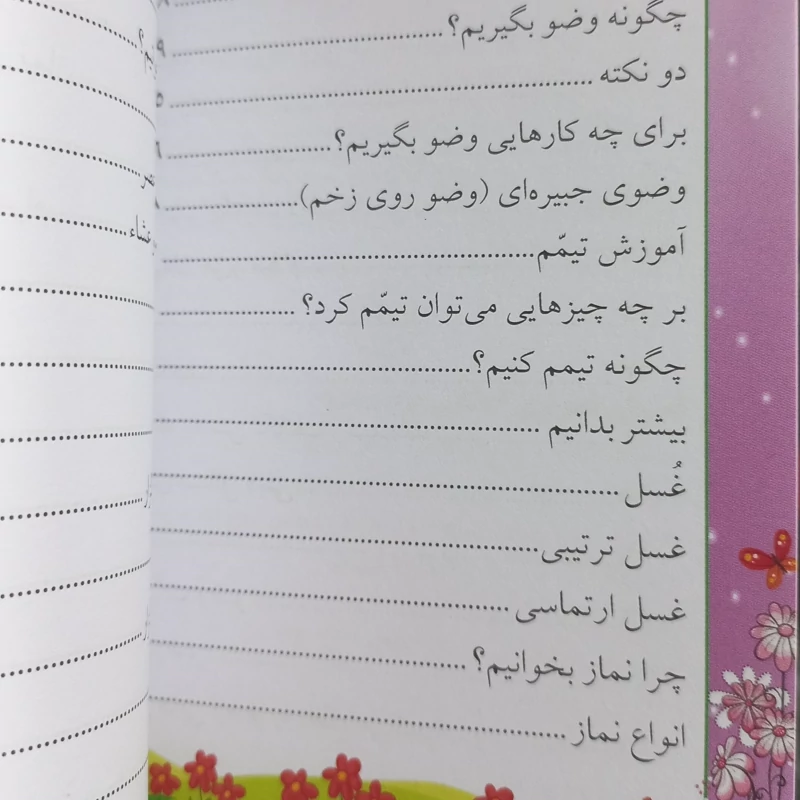 چگونه وضو بگیریم؟
دو نکته
برای چه کارهایی وضو بگیریم؟
وضوی جبیره‌ای (وضو روی زخم)
آموزش تیمّم
بر چه چیزهایی می‌توان تیمّم کرد؟
چگونه تیمم کنیم؟
بیشتر بدانیم
غُسل
غسل ترتیبی
غسل ارتماسی
چرا نماز بخوانیم؟
انواع نماز
عشاء